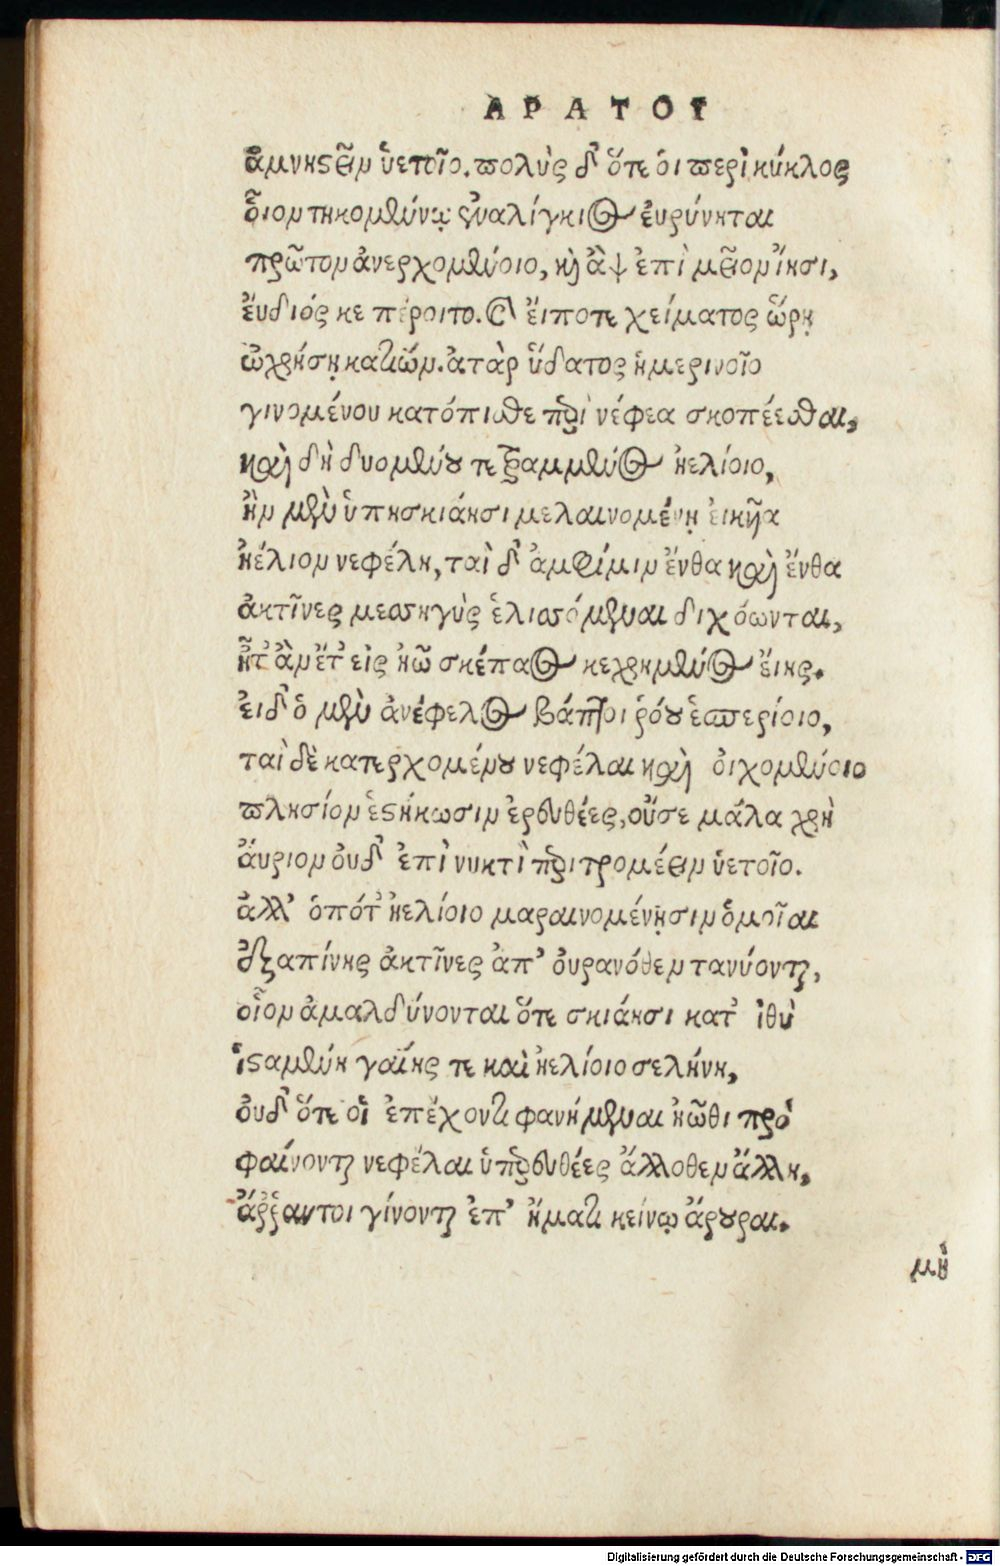 ΑΡΑΤΟΥ
ἀμνηστεῖν ὑετοῖο. πολὺς δ' ὅτε οἱ περὶ κύκλος
οἷον τηκομένῳ ἐναλίγκιος εὐρύνηται
πρῶτον ἀνερχομένοιο, καὶ ἂψ ἐπὶ μεῖον ἴησι,
εὔδιός κε πέροιτο. καὶ εἴποτε χείματος ὥρῃ
ὠχρήσῃ κατιών. ἀτὰρ ὕδατος ἡμερινοῖο
γινομένου κατόπισθε περὶ νέφεα σκοπέεσθαι,
καὶ δὴ δυομένου τετραμμένος ἠελίοιο,
ἢν μὲν ὑπησκιάησι μελαινομένῃ εἰκῆα
ἠέλιον νεφέλη, ταὶ δ' ἀμφίμιν ἔνθα καὶ ἔνθα
ἀκτῖνες μεσσηγὺς ἑλισσόμεναι διχόωνται,
ἦτ' ἂν ἔτ' εἰς ἠῶ σκέπαος κεχρημένος εἴης.
εἰ δ' ὁ μὲν ἀνέφελος βάπτοι ῥόου ἑσπερίοιο,
ταὶ δὲ κατερχομένου νεφέλαι καὶ οἰχομένοιο
πλησίον ἑστήκωσιν ἐρευθέες, οὔσε μάλα χρὴ
αὔριον οὐδ' ἐπὶ νυκτὶ περιτρομέειν ὑετοῖο.
ἀλλ' ὁπότ' ἠελίοιο μαραινομένῃσιν ὁμοῖαι
ἐξαπίνης ἀκτῖνες ἀπ' οὐρανόθεν τανύονται,
οἷον ἀμαλδύνονται ὅτε σκιάησι κατ' ἰθὺ
ἱσταμένη γαίης τε καὶ ἠελίοιο σελήνη,
οὐδ' ὅτε οἱ ἐπέχοντι φανήμεναι ἠῶθι πρὸ
φαίνονται νεφέλαι ὑπερευθέες ἄλλοθεν ἄλλη,
ἄῤῥαντοι γίνονται ἐπ' ἤματι κείνῳ ἄρουραι.
μὴ